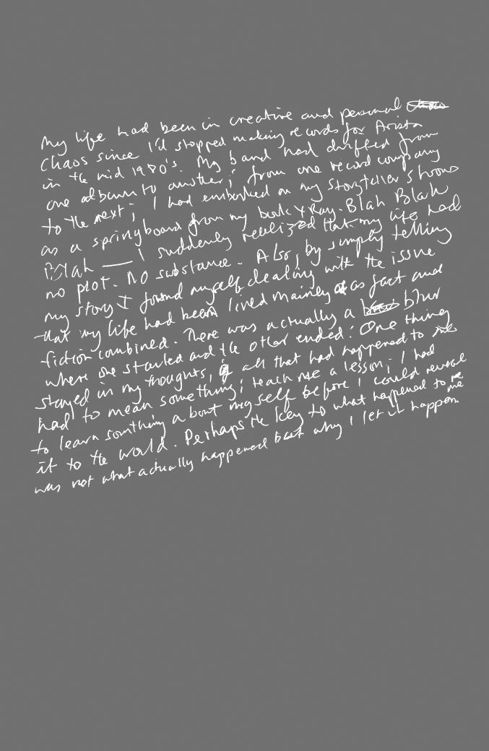 My life had been in creative and personal
chaos since I'd stopped making records for Arista
in the mid 1980's. My band had drifted from
one album to another; from one record company
to the next; I had embarked on my storyteller's shows
as a springboard from my book X Ray. Blah Blah
Blah — I suddenly realized that my life had
no plot. No substance. Also, by simply telling
my story I found myself dealing with the issue
that my life had been lived mainly as fact and
fiction combined. There was actually a blur
where one started and the other ended: One thing
stayed in my thoughts, if all that had happened to me
had to mean something; teach me a lesson; I had
to learn something about myself before I could reveal
it to the world. Perhaps the key to what happened to me
was not what actually happened but why I let it happen